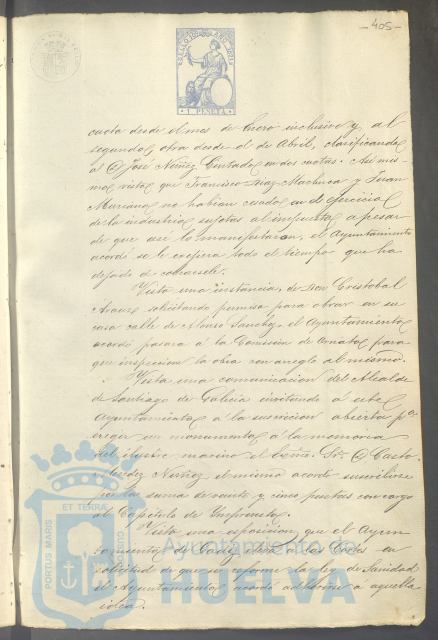 -405-
SELLO 10º AÑO 1881
1 PESETA
cuota desde el mes de Enero inclusive y al
segundo, otra desde el de Abril, clasificando
a D. José Nuñez en dos cuotas. Asi mis-
mo, vista que Francisco Diaz Machuca y Juan
Mariano no habian cesado en el ejercicio
de la industria sujetas al impuesto apesar
de que asi lo manifestaron, el Ayuntamiento
acordó se le todo el tiempo que ha
dejado de
Vista una instancia, de Don Cristobal
solicitando permiso para obrar en su
casa calle de Alonso Sanchez, el Ayuntamiento
acordó pasara á la Comision de Ornato, para
que inspeccion la obra con arreglo al mismo.
Vista una comunicacion del Alcalde
de Santiago de Galicia invitando á este
Ayuntamiento á la suscricion abierta pª
erigir un monumento á la memoria
del ilustre marino el Escmo. Sr. D. Casto
Mendez Nuñez el mismo acordó suscribirse
por la suma de veinte y cinco pesetas con cargo
al Capitulo de Imprevistos.
Vista una esposicion, que el Ayun-
tamiento de Cadiz eleva á las Cortes en
solicitud de que se reforme la ley de Sanidad
el Ayuntamiento acordó adherirse á aquella
idea.
PORTUS MARIS ET TERRAE CUSTODIA
Ayuntamiento de
HUELVA